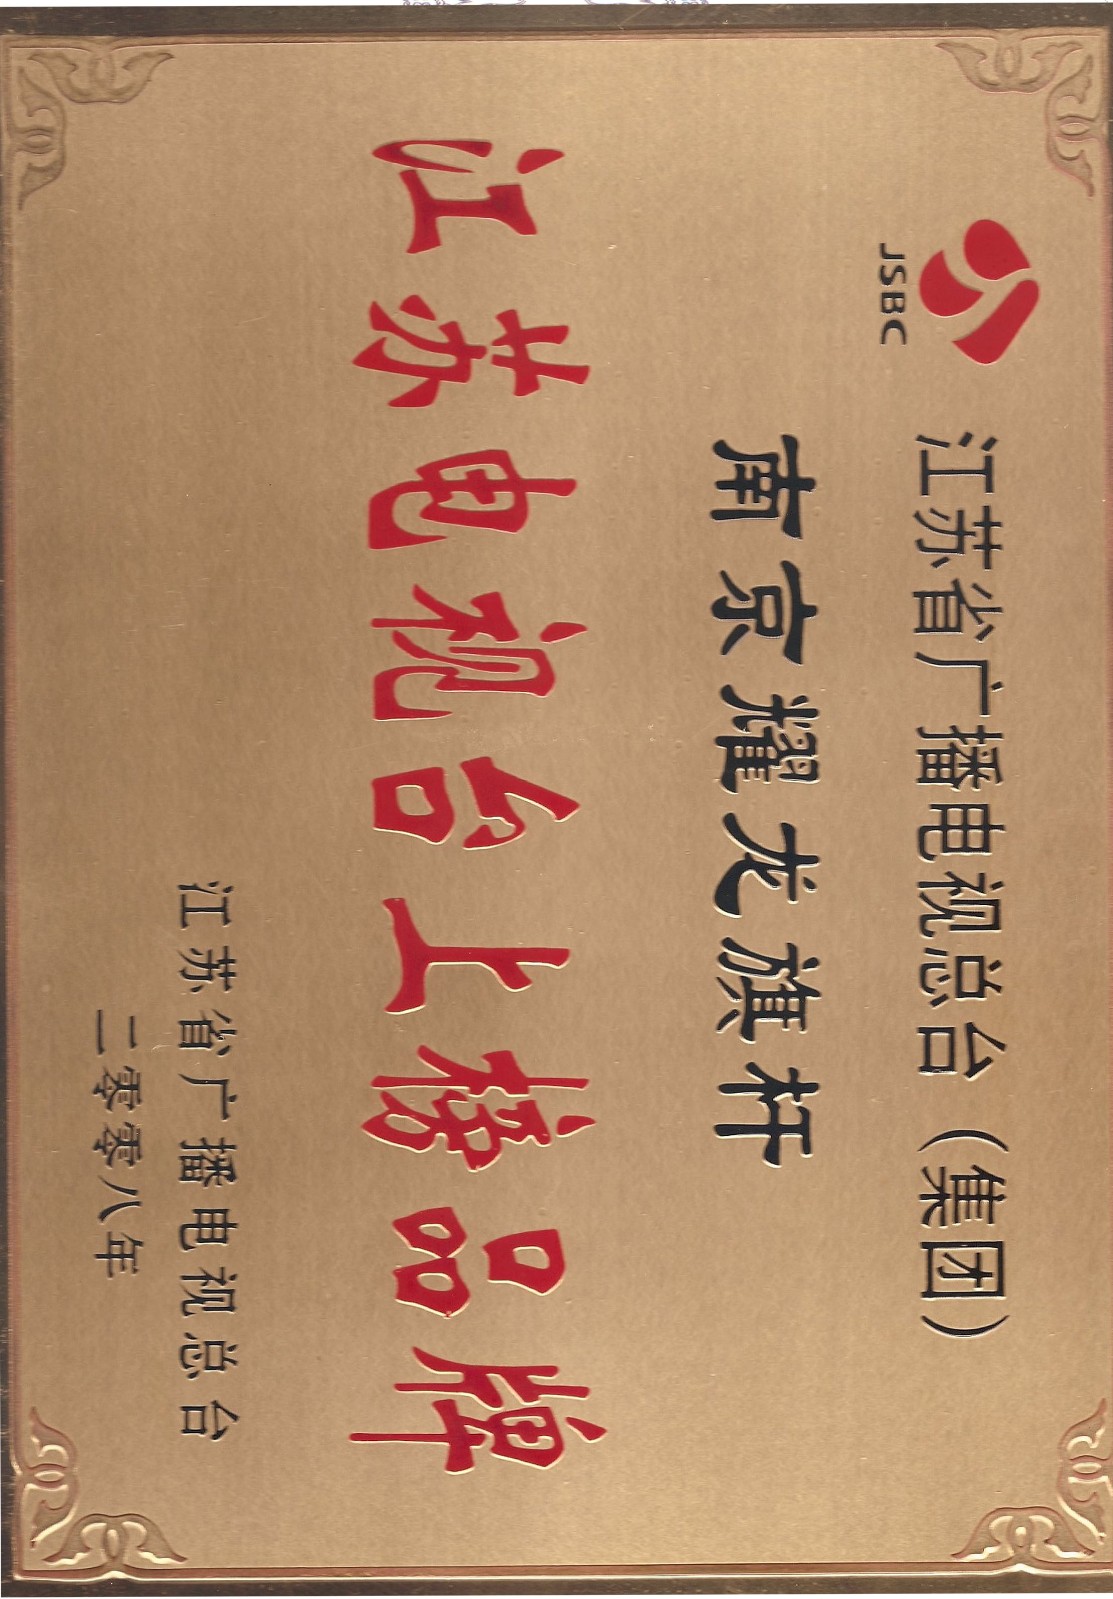 JSBC
江苏省广播电视总台（集团）
南京耀龙旗杆
江苏电视台上榜品牌
江苏省广播电视总台
二零零八年